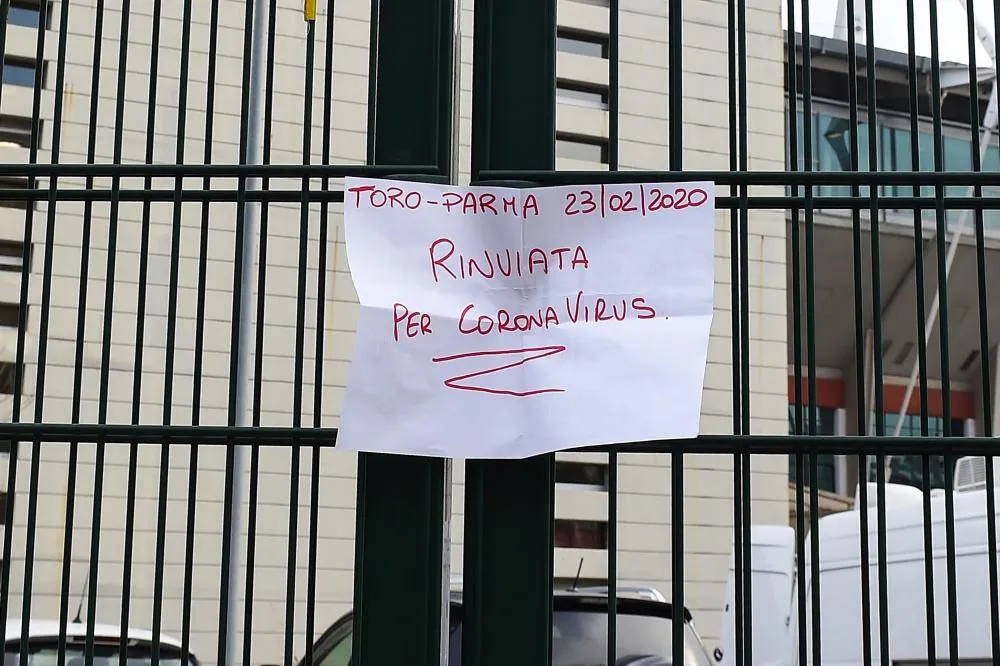 TORO-PARMA 23/02/2020
RINVIATA
PER CORONAVIRUS.